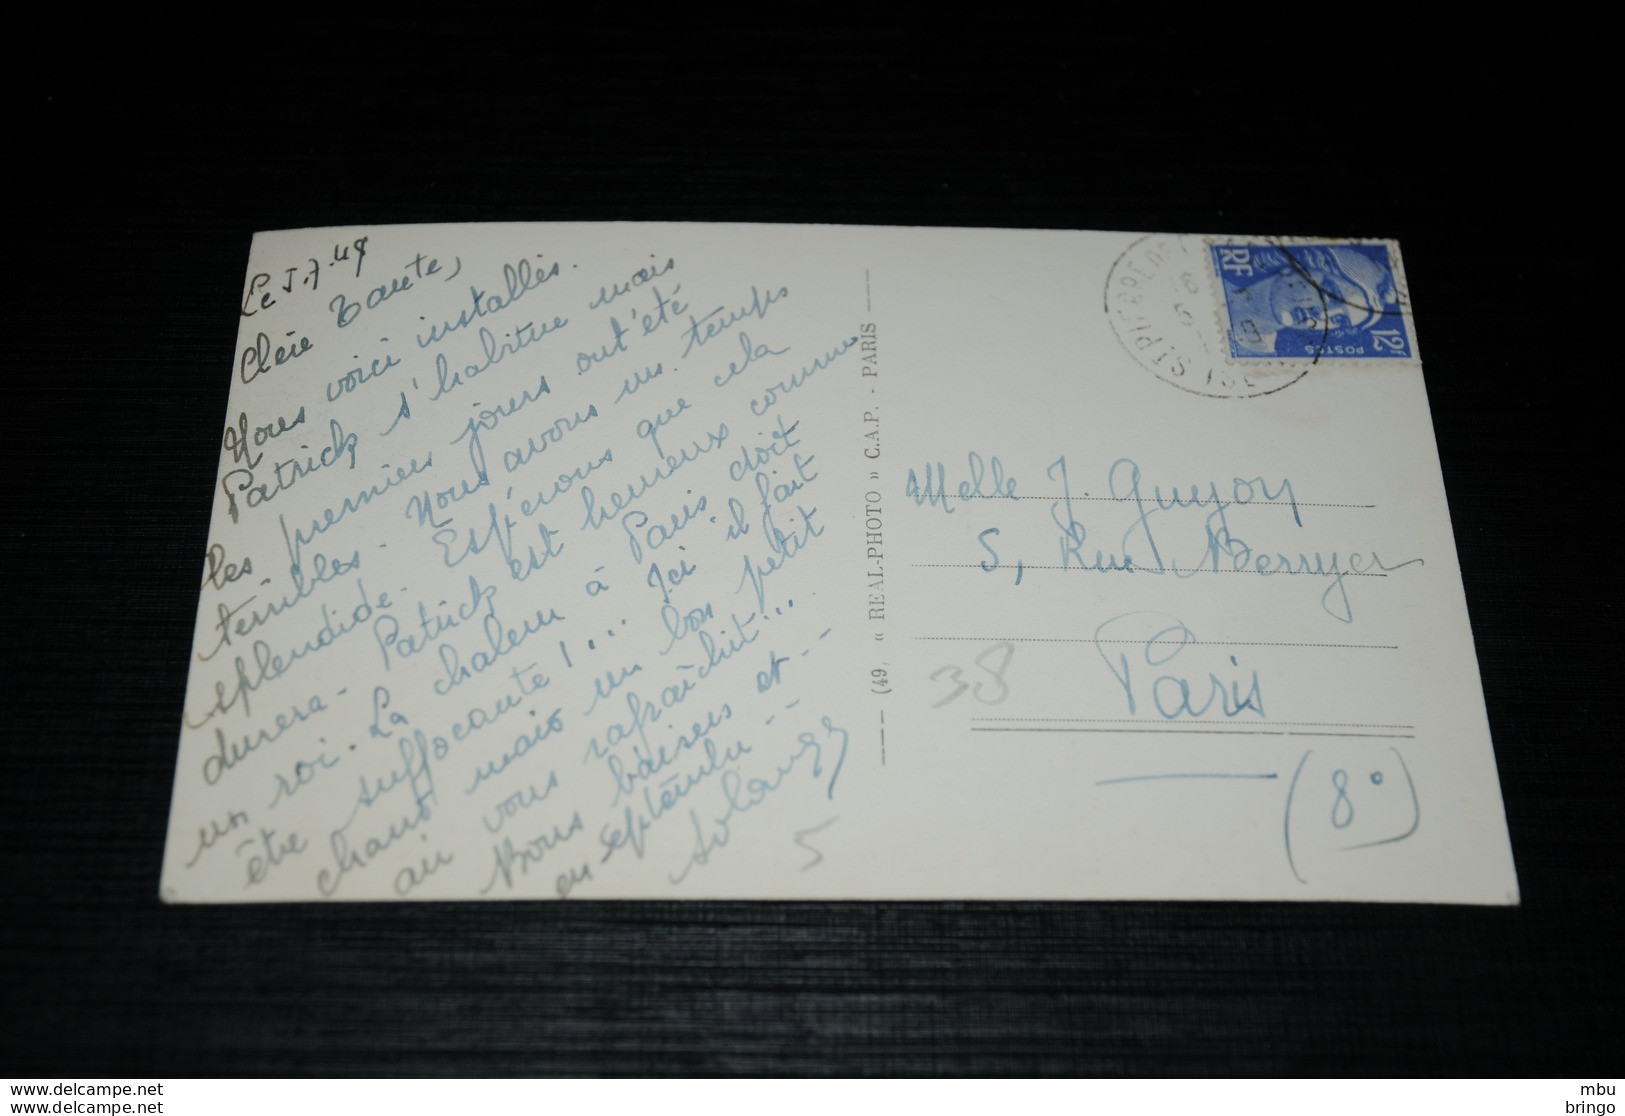 Le 5.7.49
Chère Tante,
Nous voici installés.
Patrick s'habitue mais
les premiers jours ont été
terribles. Nous avons un temps
splendide. Espérons que cela
durera. Patrick est heureux comme
un roi. La chaleur à Paris doit
être suffocante !... Ici il fait
chaud mais un bon petit
air vous rafraîchit...
Bons baisers et
en septembre
Solange
(49, « REAL-PHOTO » C.A.P. - PARIS
RF
12F
POSTES
ST PIERRE DE
ISÈ
Melle J. Guyon
5, Rue Berryer
Paris
(8°)
38
5
delcampe.net
delcampe.net
mbu
bringo